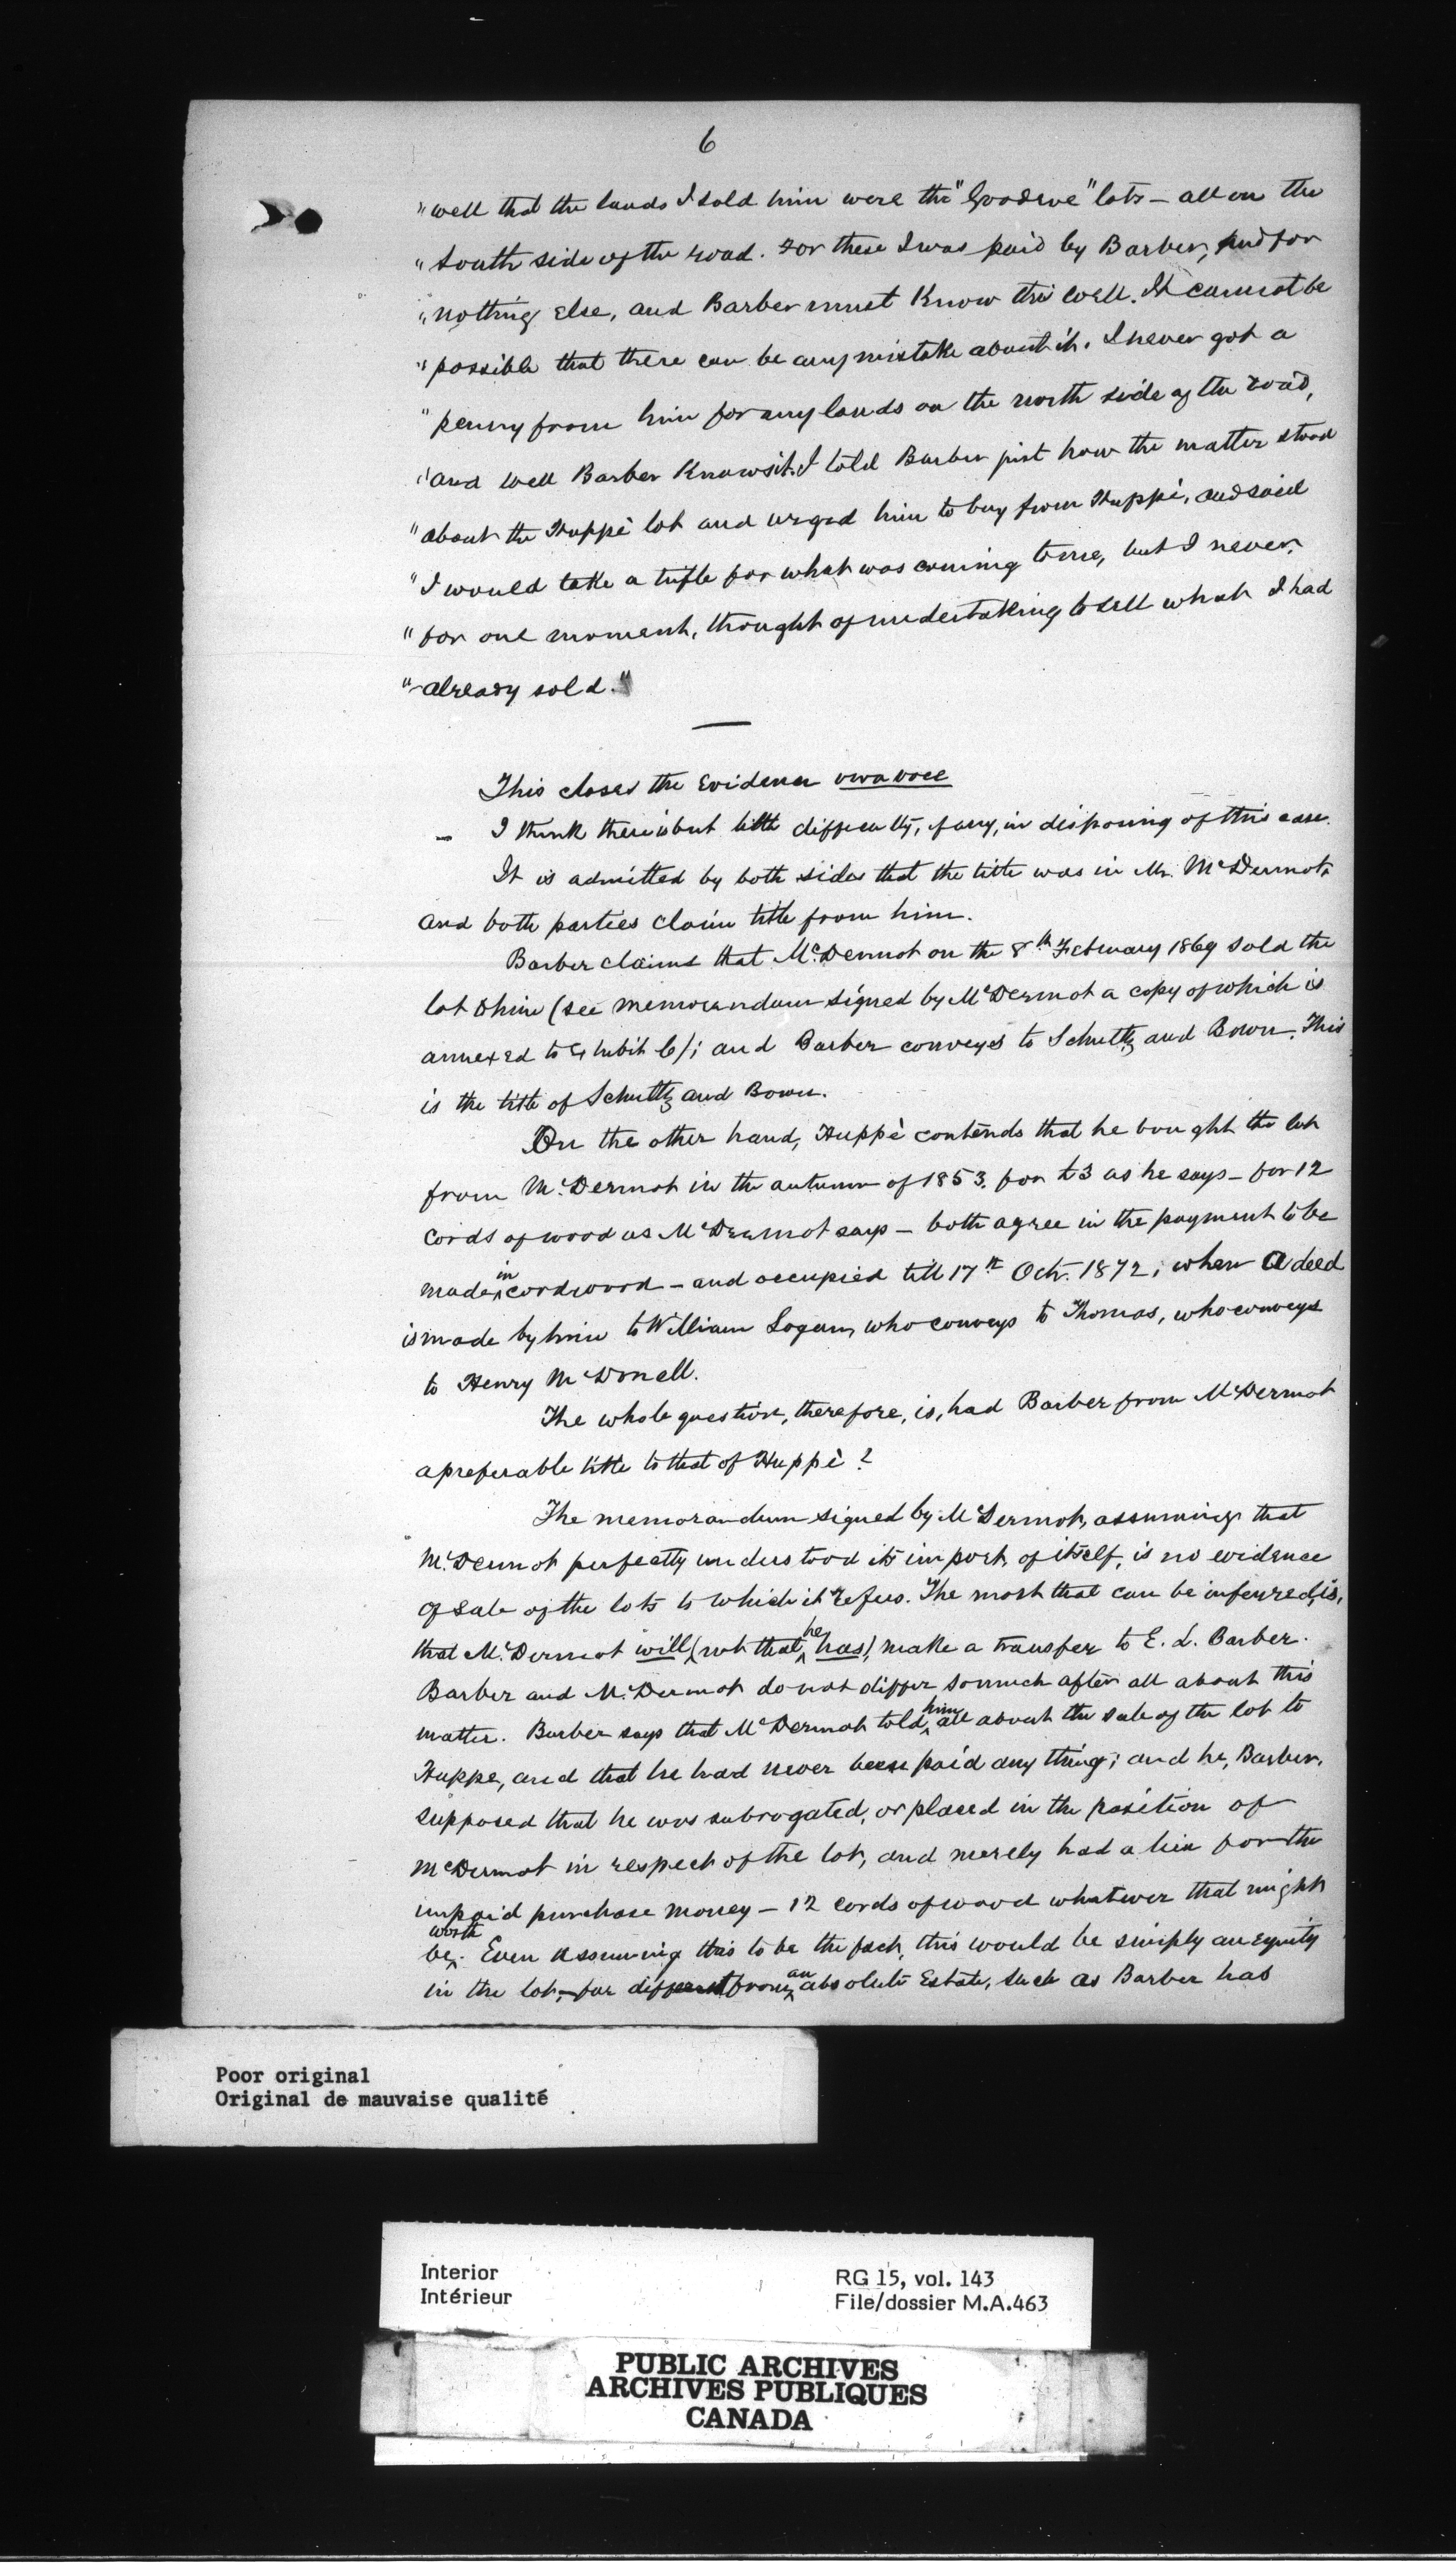 6
"well that the lands I sold him were the "Goodwe" lots – all on the
"South side of the road. For these I was paid by Barber, and for
"nothing else, and Barber must Know this well. It cannot be
"possible that there can be any mistake about it. I never got a
"penny from him for any lands on the north side of the road,
"and well Barber Knows it. I told Barber just how the matter stood
"about the Huppè lot and urged him to buy from Huppè, and said
"I would take a trifle for what was coming to me, but I never,
"for one moment, thought of undertaking to sell what I had
"already sold."
This closes the Evidence viva voce
– I think there is but little difficulty, if any, in disposing of this case.
It is admitted by both sides that the title was in Mr. McDermot,
and both parties claim title from him.
Barber claims that McDermot on the 8th February 1869 sold the
lot to him (see memorandum signed by McDermot a copy of which is
annexed to Exhibit 6); and Barber conveyed to Schultz and Bown. This
is the title of Schultz and Bown.
On the other hand, Huppè contends that he bought the lot
from McDermot in the autumn of 1853. for £3 as he says – for 12
cords of wood as McDermot says – both agree in the payment to be
made in cordwood – and occupied till 17th Octr. 1872, when a deed
is made by him to William Logan, who conveys to Thomas, who conveys
to Henry McDonell.
The whole question, therefore, is, had Barber from McDermot
a preferable title to that of Huppè?
The memorandum signed by McDermot, assuming that
McDermot perfectly understood its import, of itself, is no evidence
of sale of the lots to which it refers. The most that can be inferred, is,
that McDermot will (not that he has), make a transfer to E. L. Barber.
Barber and McDermot do not differ so much after all about this
matter. Barber says that McDermot told him all about the sale of the lot to
Huppe, and that he had never been paid any thing; and he, Barber,
supposed that he was subrogated, or placed in the position of
McDermot in respect of the lot, and merely had a lien for the
unpaid purchase money – 12 cords of wood whatever that might
be worth. Even assuming this to be the fact, this would be simply an Equity
in the lot, far different from an absolute Estate, such as Barber has
Poor original
Original de mauvaise qualité
Interior
Intérieur
RG 15, vol. 143
File/dossier M.A.463
PUBLIC ARCHIVES
ARCHIVES PUBLIQUES
CANADA